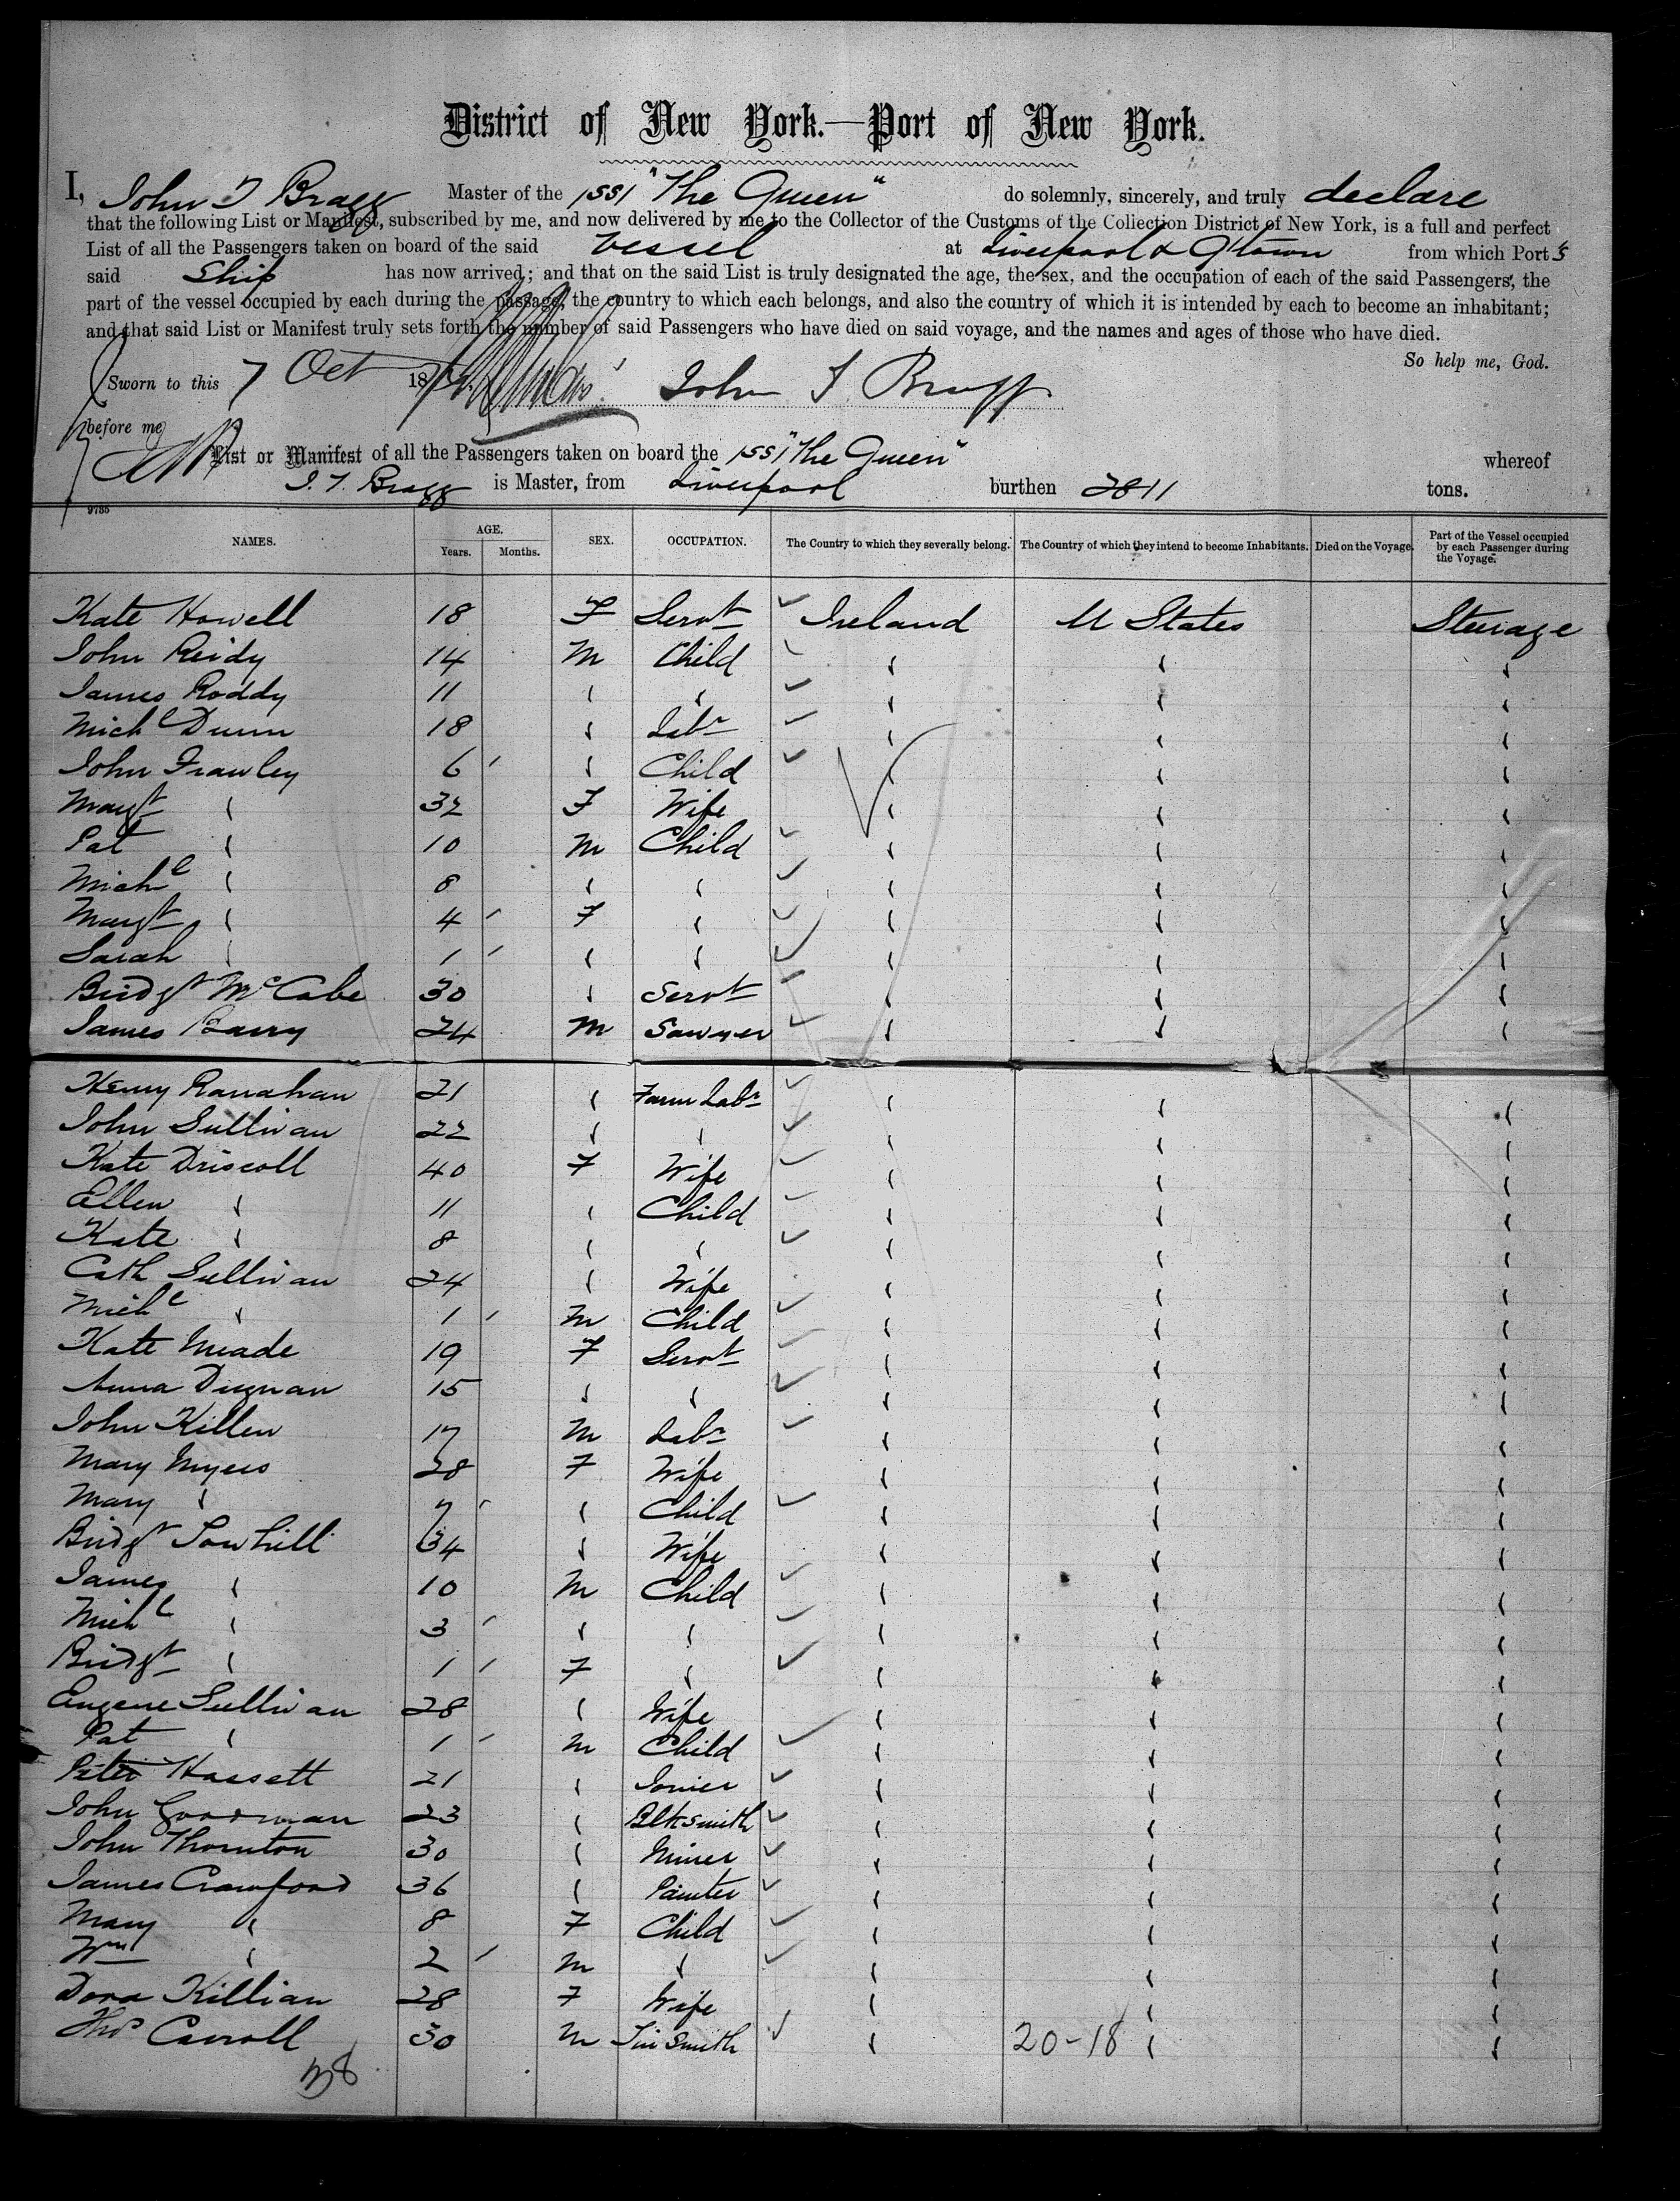 District of New York.—Port of New York.
I, John F Bragg Master of the "SS "The Queen" do solemnly, sincerely, and truly declare
that the following List or Manifest, subscribed by me, and now delivered by me to the Collector of the Customs of the Collection District of New York, is a full and perfect
List of all the Passengers taken on board of the said Vessel at Liverpool & Qtown from which Port s
said Ship has now arrived; and that on the said List is truly designated the age, the sex, and the occupation of each of the said Passengers, the
part of the vessel occupied by each during the passage, the country to which each belongs, and also the country of which it is intended by each to become an inhabitant;
and that said List or Manifest truly sets forth the number of said Passengers who have died on said voyage, and the names and ages of those who have died.
So help me, God.
Sworn to this 7 Oct 18 John F. Bragg
before me
List or Manifest of all the Passengers taken on board the "SS "The Queen" whereof
J. F. Bragg is Master, from Liverpool burthen 2811 tons.
9785
NAMES. AGE. Years. Months. SEX. OCCUPATION. The Country to which they severally belong. The Country of which they intend to become Inhabitants. Died on the Voyage. Part of the Vessel occupied by each Passenger during the Voyage.
Kate Howell 18 F Servt Ireland U States Steerage
John Reidy 14 M Child " " "
James Roddy 11 " " " " "
Michl Dunn 18 " Labr " " "
John Frawley 6 " Child " " "
Margt " 32 F Wife " " "
Pat " 10 M Child " " "
Michl " 8 " " " " "
Margt " 4 F " " " "
Sarah " 1 " " " " "
Bridgt McCabe 30 " Servt " " "
James Barry 24 M Sawyer " " "
Henry Ranahan 21 " Farm Labr " " "
John Sullivan 22 " " " " "
Kate Driscoll 40 F Wife " " "
Ellen " 11 " Child " " "
Kate " 8 " " " " "
Cath Sullivan 24 " Wife " " "
Michl " 1 M Child " " "
Kate Meade 19 F Servt " " "
Anna Dignan 15 " " " " "
John Killen 17 M Labr " " "
Mary Myers 28 F Wife " " "
Mary " 7 " Child " " "
Bridgt 34 " Wife " " "
James " 10 M Child " " "
Michl " 3 " " " " "
Bridgt " 1 F " " " "
Eugene Sullivan 28 " Wife " " "
Pat " 1 M Child " " "
Peter Hassett 21 " Joiner " " "
John Goodman 23 " Blksmith " " "
John Thornton 30 " Miner " " "
James Crawford 36 " Painter " " "
Mary " 8 F Child " " "
Wm " 2 M " " " "
Dora Killian 28 F Wife " " "
Thos Carroll 30 M Tin Smith " 20-18 " "
38